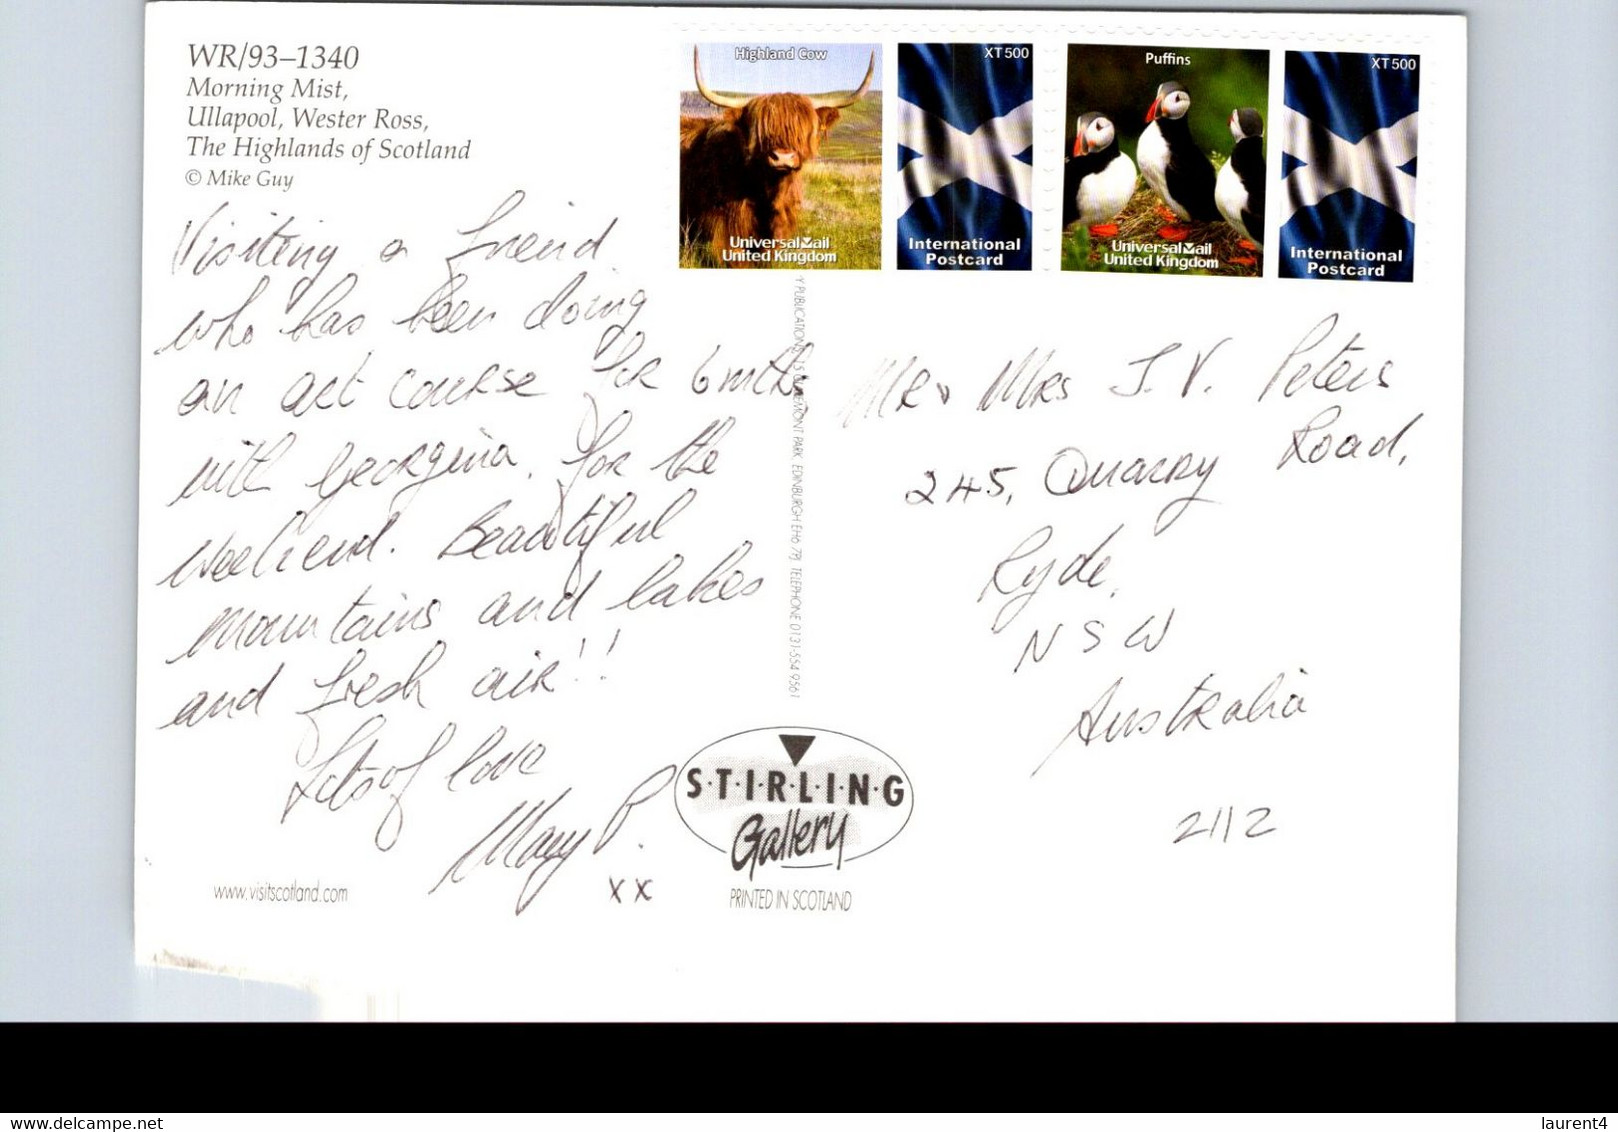 WR/93–1340
Morning Mist,
Ullapool, Wester Ross,
The Highlands of Scotland
© Mike Guy
Highland Cow
UniversalMail
United Kingdom
XT500
International
Postcard
Puffins
UniversalMail
United Kingdom
XT500
International
Postcard
Visiting a friend
who has been doing
an art course for 6 mths
with Georgina, for the
weekend. Beautiful
mountains and lakes
and fresh air!!
Lots of love
Mary P.
xx
Y PUBLICATIONS, 15 MONT PARK EDINBURGH EH6 7PJ TELEPHONE 0131-554 9561
Mr & Mrs J.V. Peters
245, Quarry Road,
Ryde,
NSW
Australia
2112
S·T·I·R·L·I·N·G
Gallery
PRINTED IN SCOTLAND
www.visitscotland.com
delcampe.net
laurent4